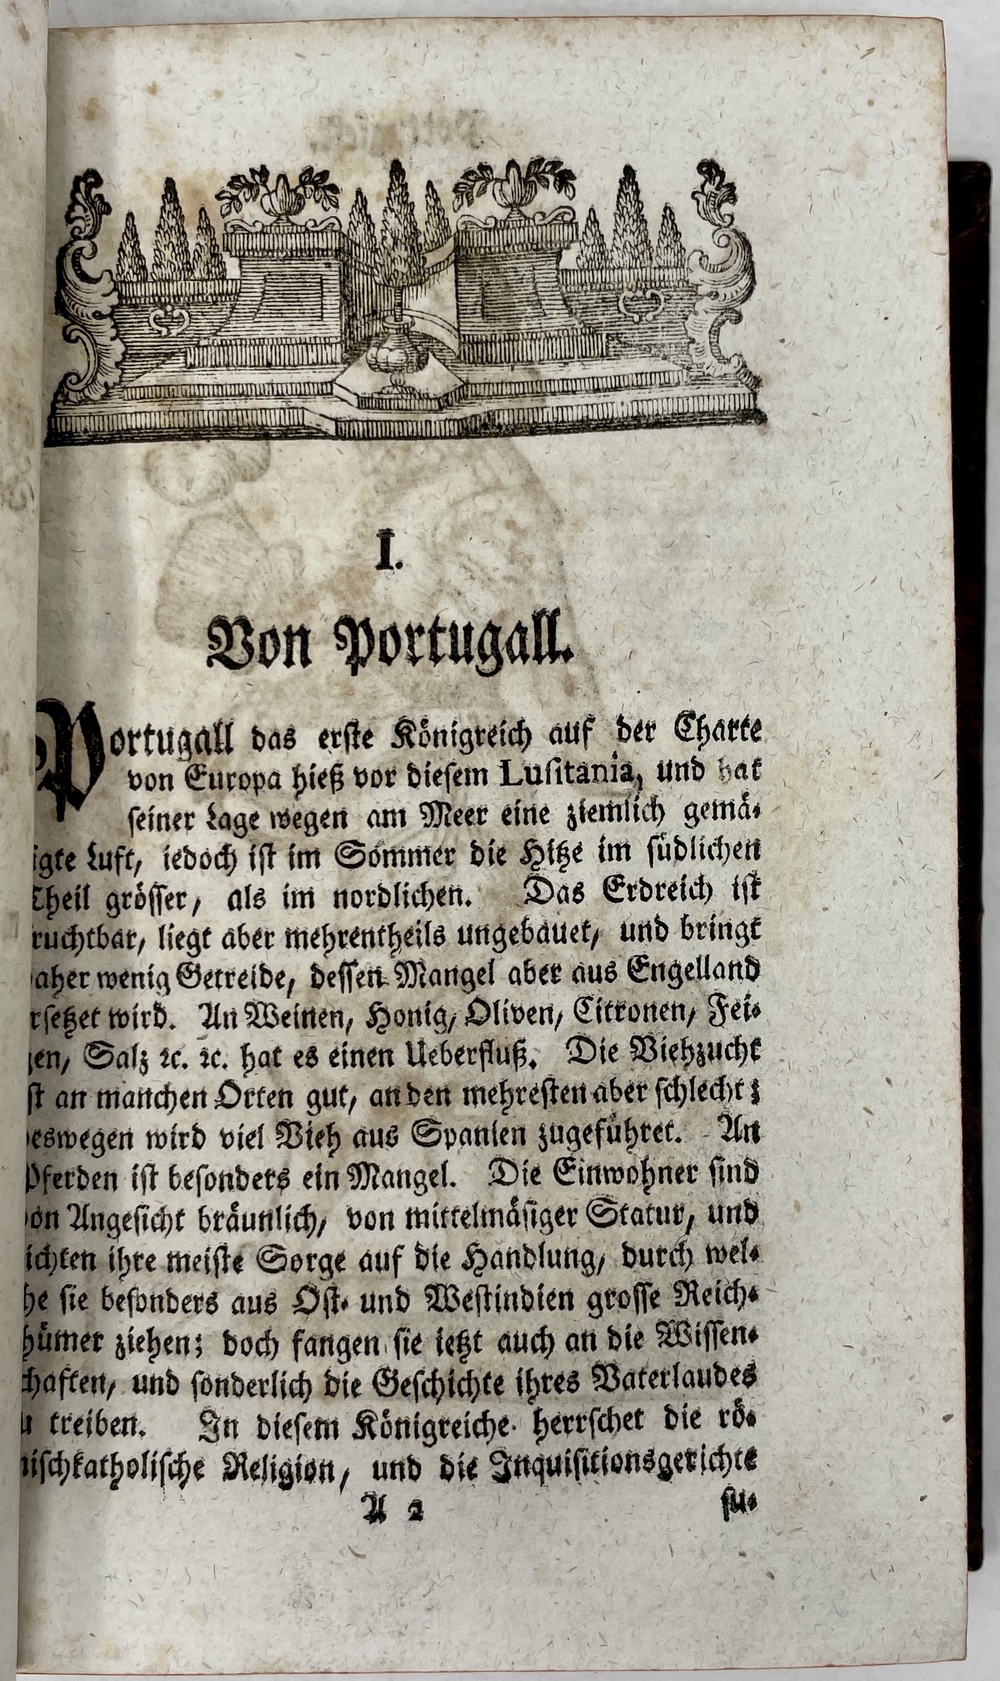 I.
Von Portugall.
Portugall das erste Königreich auf der Charte
von Europa hieß vor diesem Lusitania, und hat
seiner Lage wegen am Meer eine ziemlich gemä-
igte Luft, iedoch ist im Sommer die Hitze im südlichen
Theil grösser, als im nordlichen. Das Erdreich ist
ruchtbar, liegt aber mehrentheils ungebauet, und bringt
aher wenig Getreide, dessen Mangel aber aus Engelland
rsetzet wird. An Weinen, Honig, Oliven, Citronen, Fei-
gen, Salz ꝛc. ꝛc. hat es einen Ueberfluß. Die Viehzucht
st an manchen Orten gut, an den mehresten aber schlecht;
eswegen wird viel Vieh aus Spanien zugeführet. An
Pferden ist besonders ein Mangel. Die Einwohner sind
on Angesicht bräunlich, von mittelmäsiger Statur, und
ichten ihre meiste Sorge auf die Handlung, durch wel-
he sie besonders aus Ost- und Westindien grosse Reich-
hümer ziehen; doch fangen sie ietzt auch an die Wissen-
chaften, und sonderlich die Geschichte ihres Vaterlaudes
u treiben. In diesem Königreiche herrschet die rö-
mischkatholische Religion, und die Inquisitionsgerichte
A 2 su-